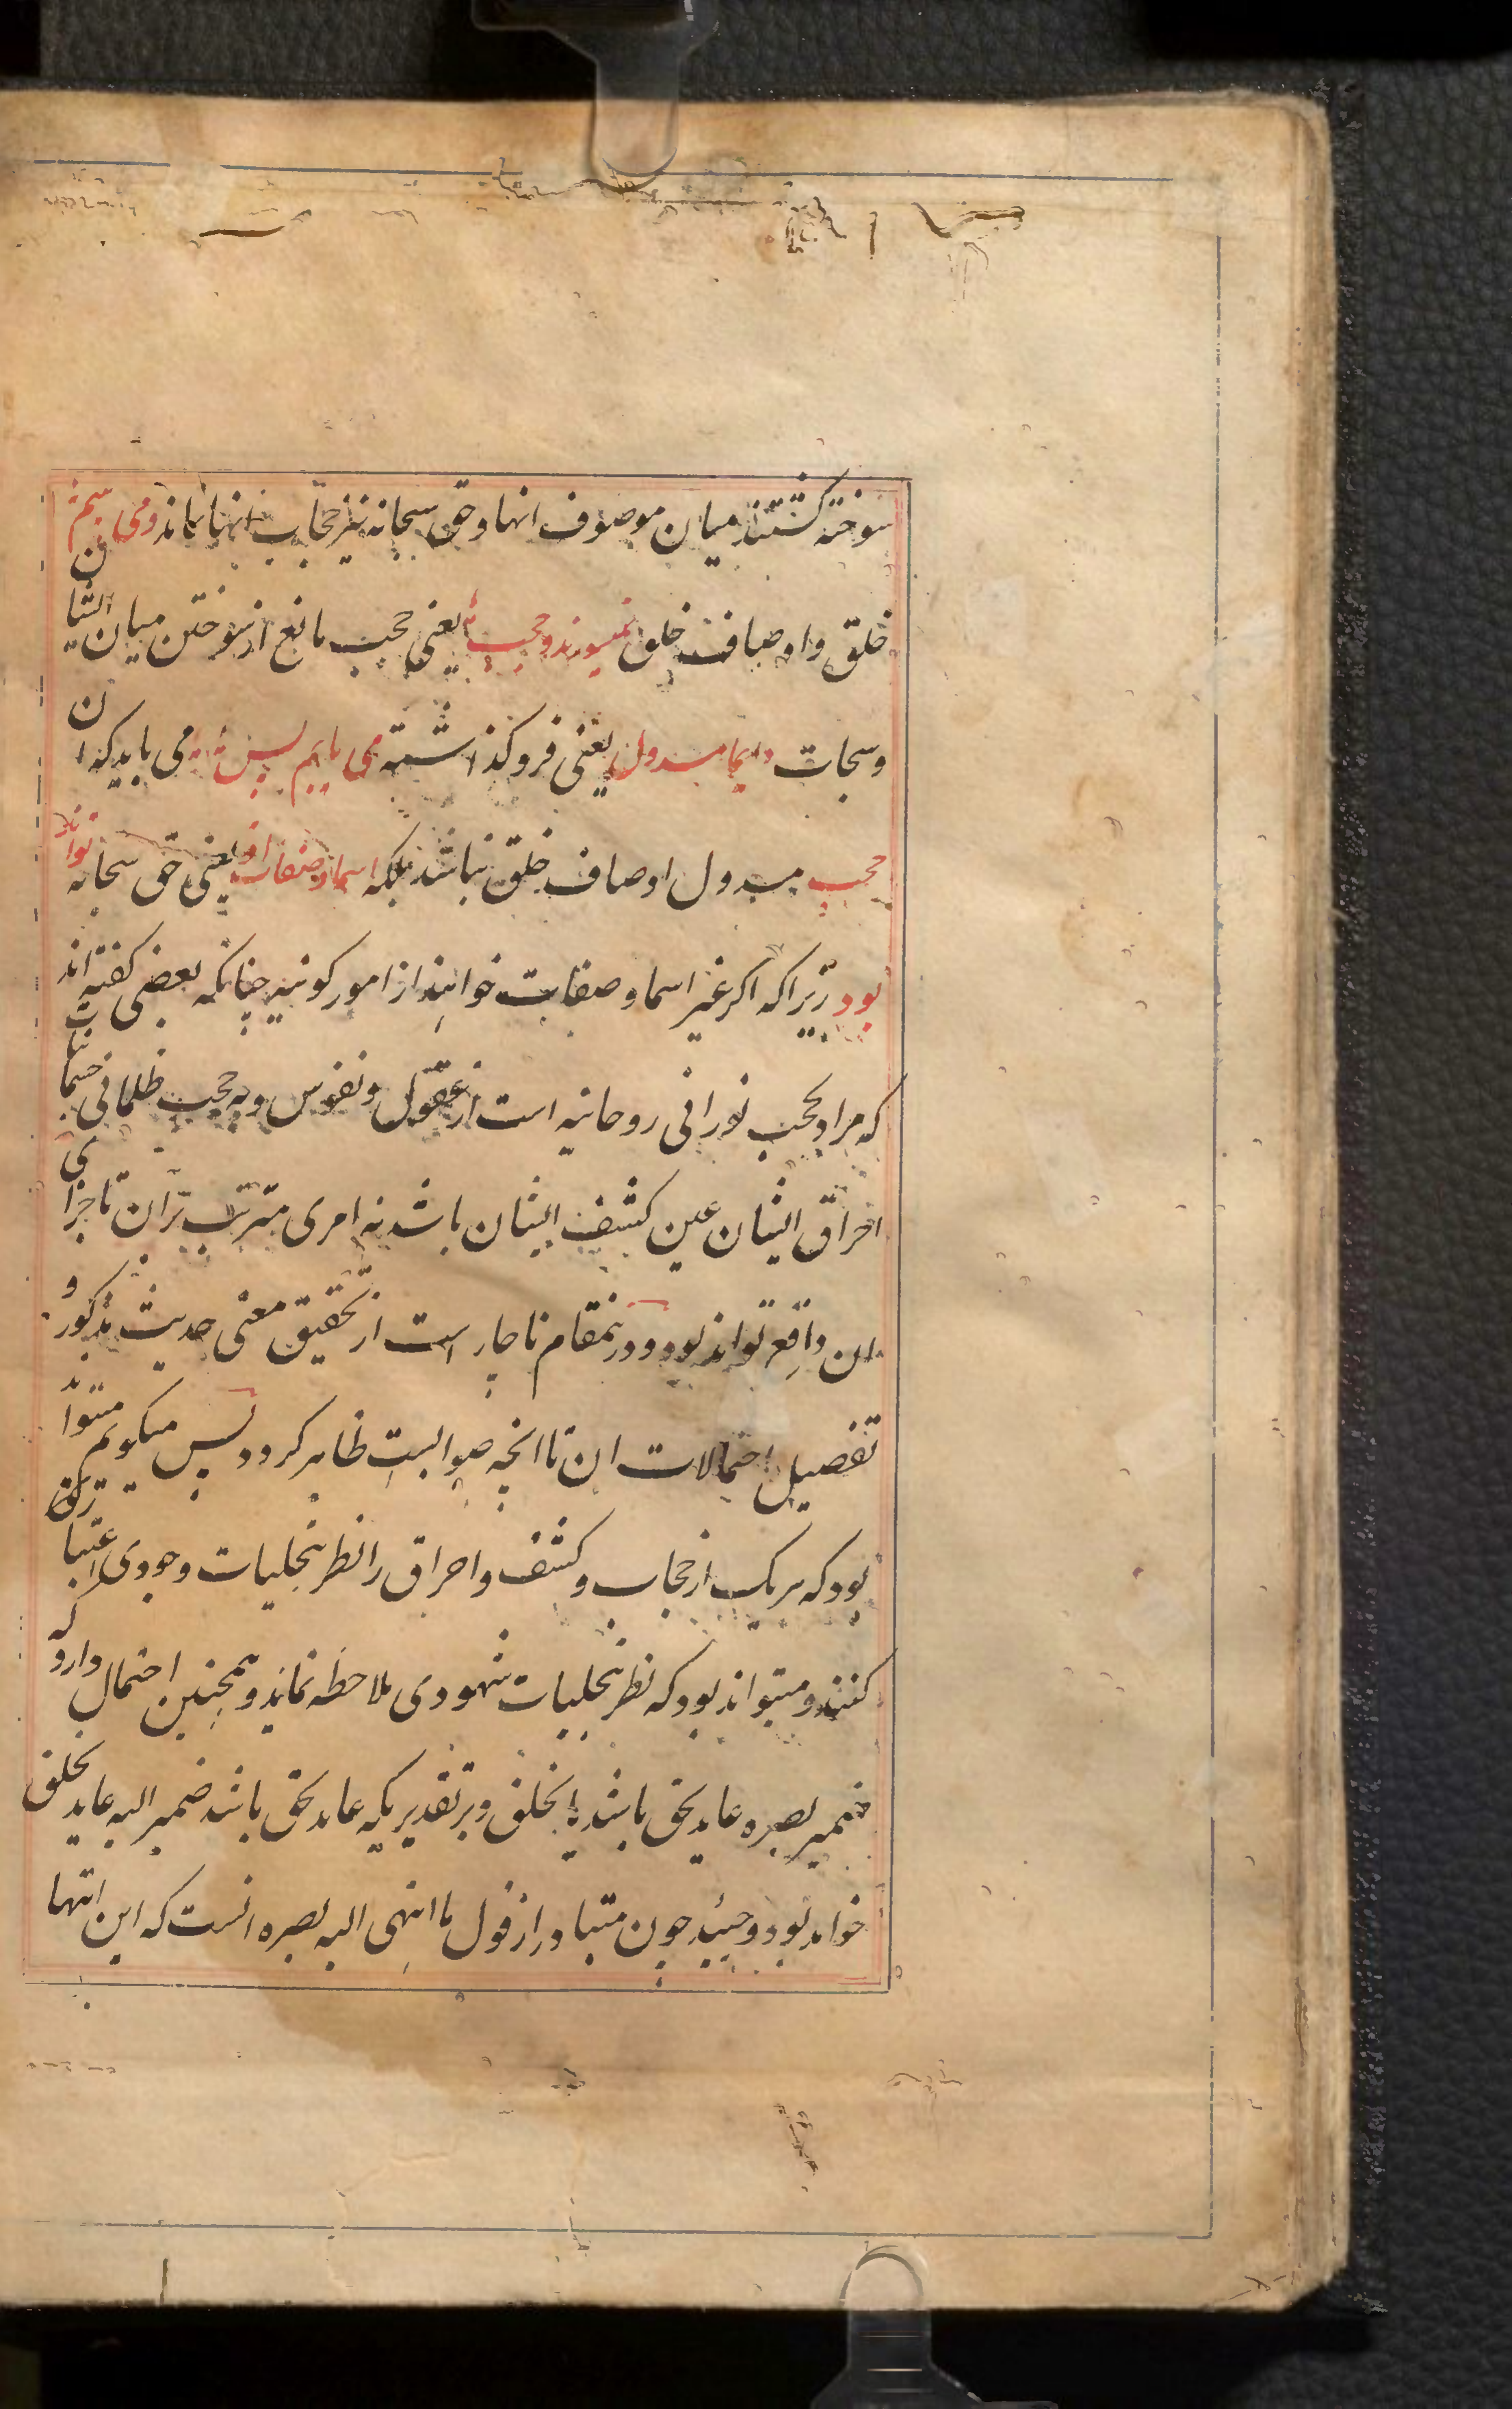 سوخته کشتند میان موصوف انها و حق سبحانه نیز حجاب انها نماند و می بینم
خلق و اوصاف خلق نمیسوزند و حجب یعنی حجب مانع از سوختن میان ایشان
و سبحات دایما مسدول یعنی فروکذاشته می یابم پس می باید که ان
حجب مسدول اوصاف خلق نباشد بلکه اسما و صفات او یعنی حق سبحانه تواند
بود زیرا که اکر غیر اسما و صفات خواهند از امور کونیه چنانکه بعضی کفته اند
که مراد بحجب نورانی روحانیه است از عقول و نفوس و به حجب ظلمانی جسمانیات
احراق ایشان عین کشف ایشان باشد نه امری مترتب بران تا جزای
ان واقع تواند بود و درینمقام ناچار است از تحقیق معنی حدیث مذکور و
تفصیل احتمالات ان تا انچه صوابست ظاهر کردد پس میکویم میتواند
بود که هریک از حجاب و کشف و احراق را نظر بتجلیات وجودی اعتبار
کنند و میتواند بود که نظر بتجلیات شهودی ملاحظه نمایند و همچنین احتمال دارد که
ضمیر بصره عاید بحق باشد یا بخلق و بر تقدیریکه عاید بحق باشد ضمیر الیه عاید بخلق
خواهد بود و حینئذ چون متبادر از قول ما انتهی الیه بصره انست که این انتها